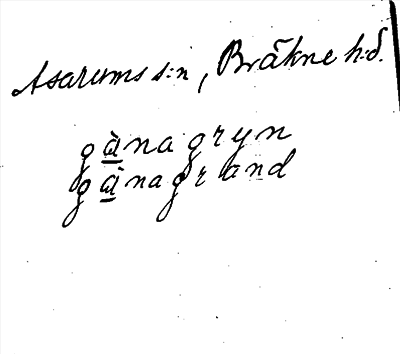 Asarums s:n, Bräkne h:d.
gà̲nagryn
gà̲nagrand